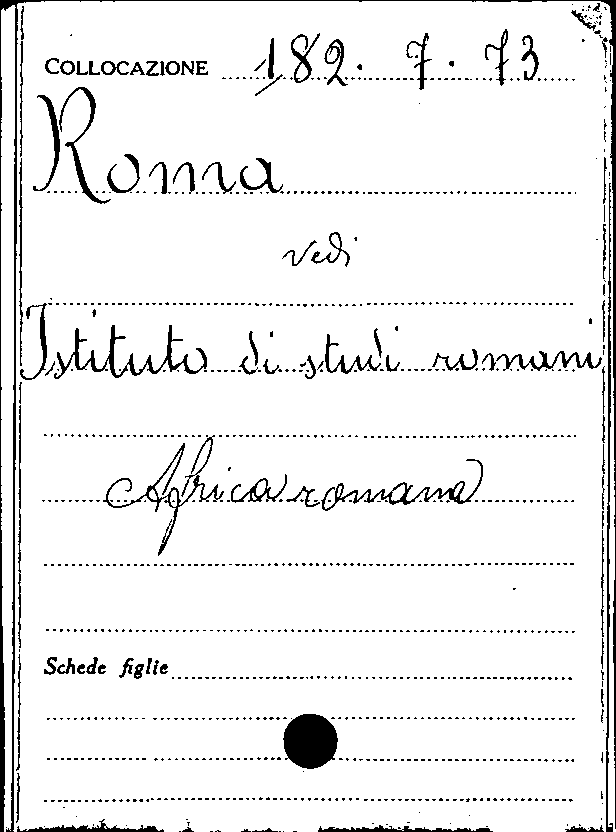 COLLOCAZIONE 182. 7. 73
Roma
vedi
Istituto di studi romani
Africa romana
Schede figlie